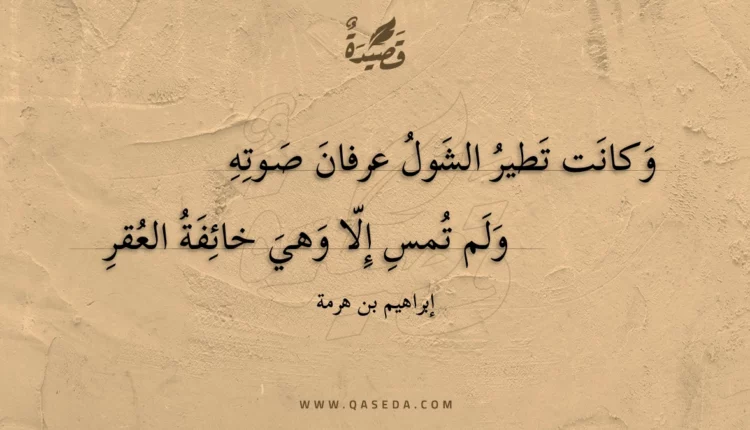 قَصِيْدَةٌ
وَكانَت تَطيرُ الشَولُ عرفانَ صَوتِهِ
وَلَم تُمسِ إِلّا وَهيَ خائِفَةُ العُقرِ
إبراهيم بن هرمة
WWW.QASEDA.COM